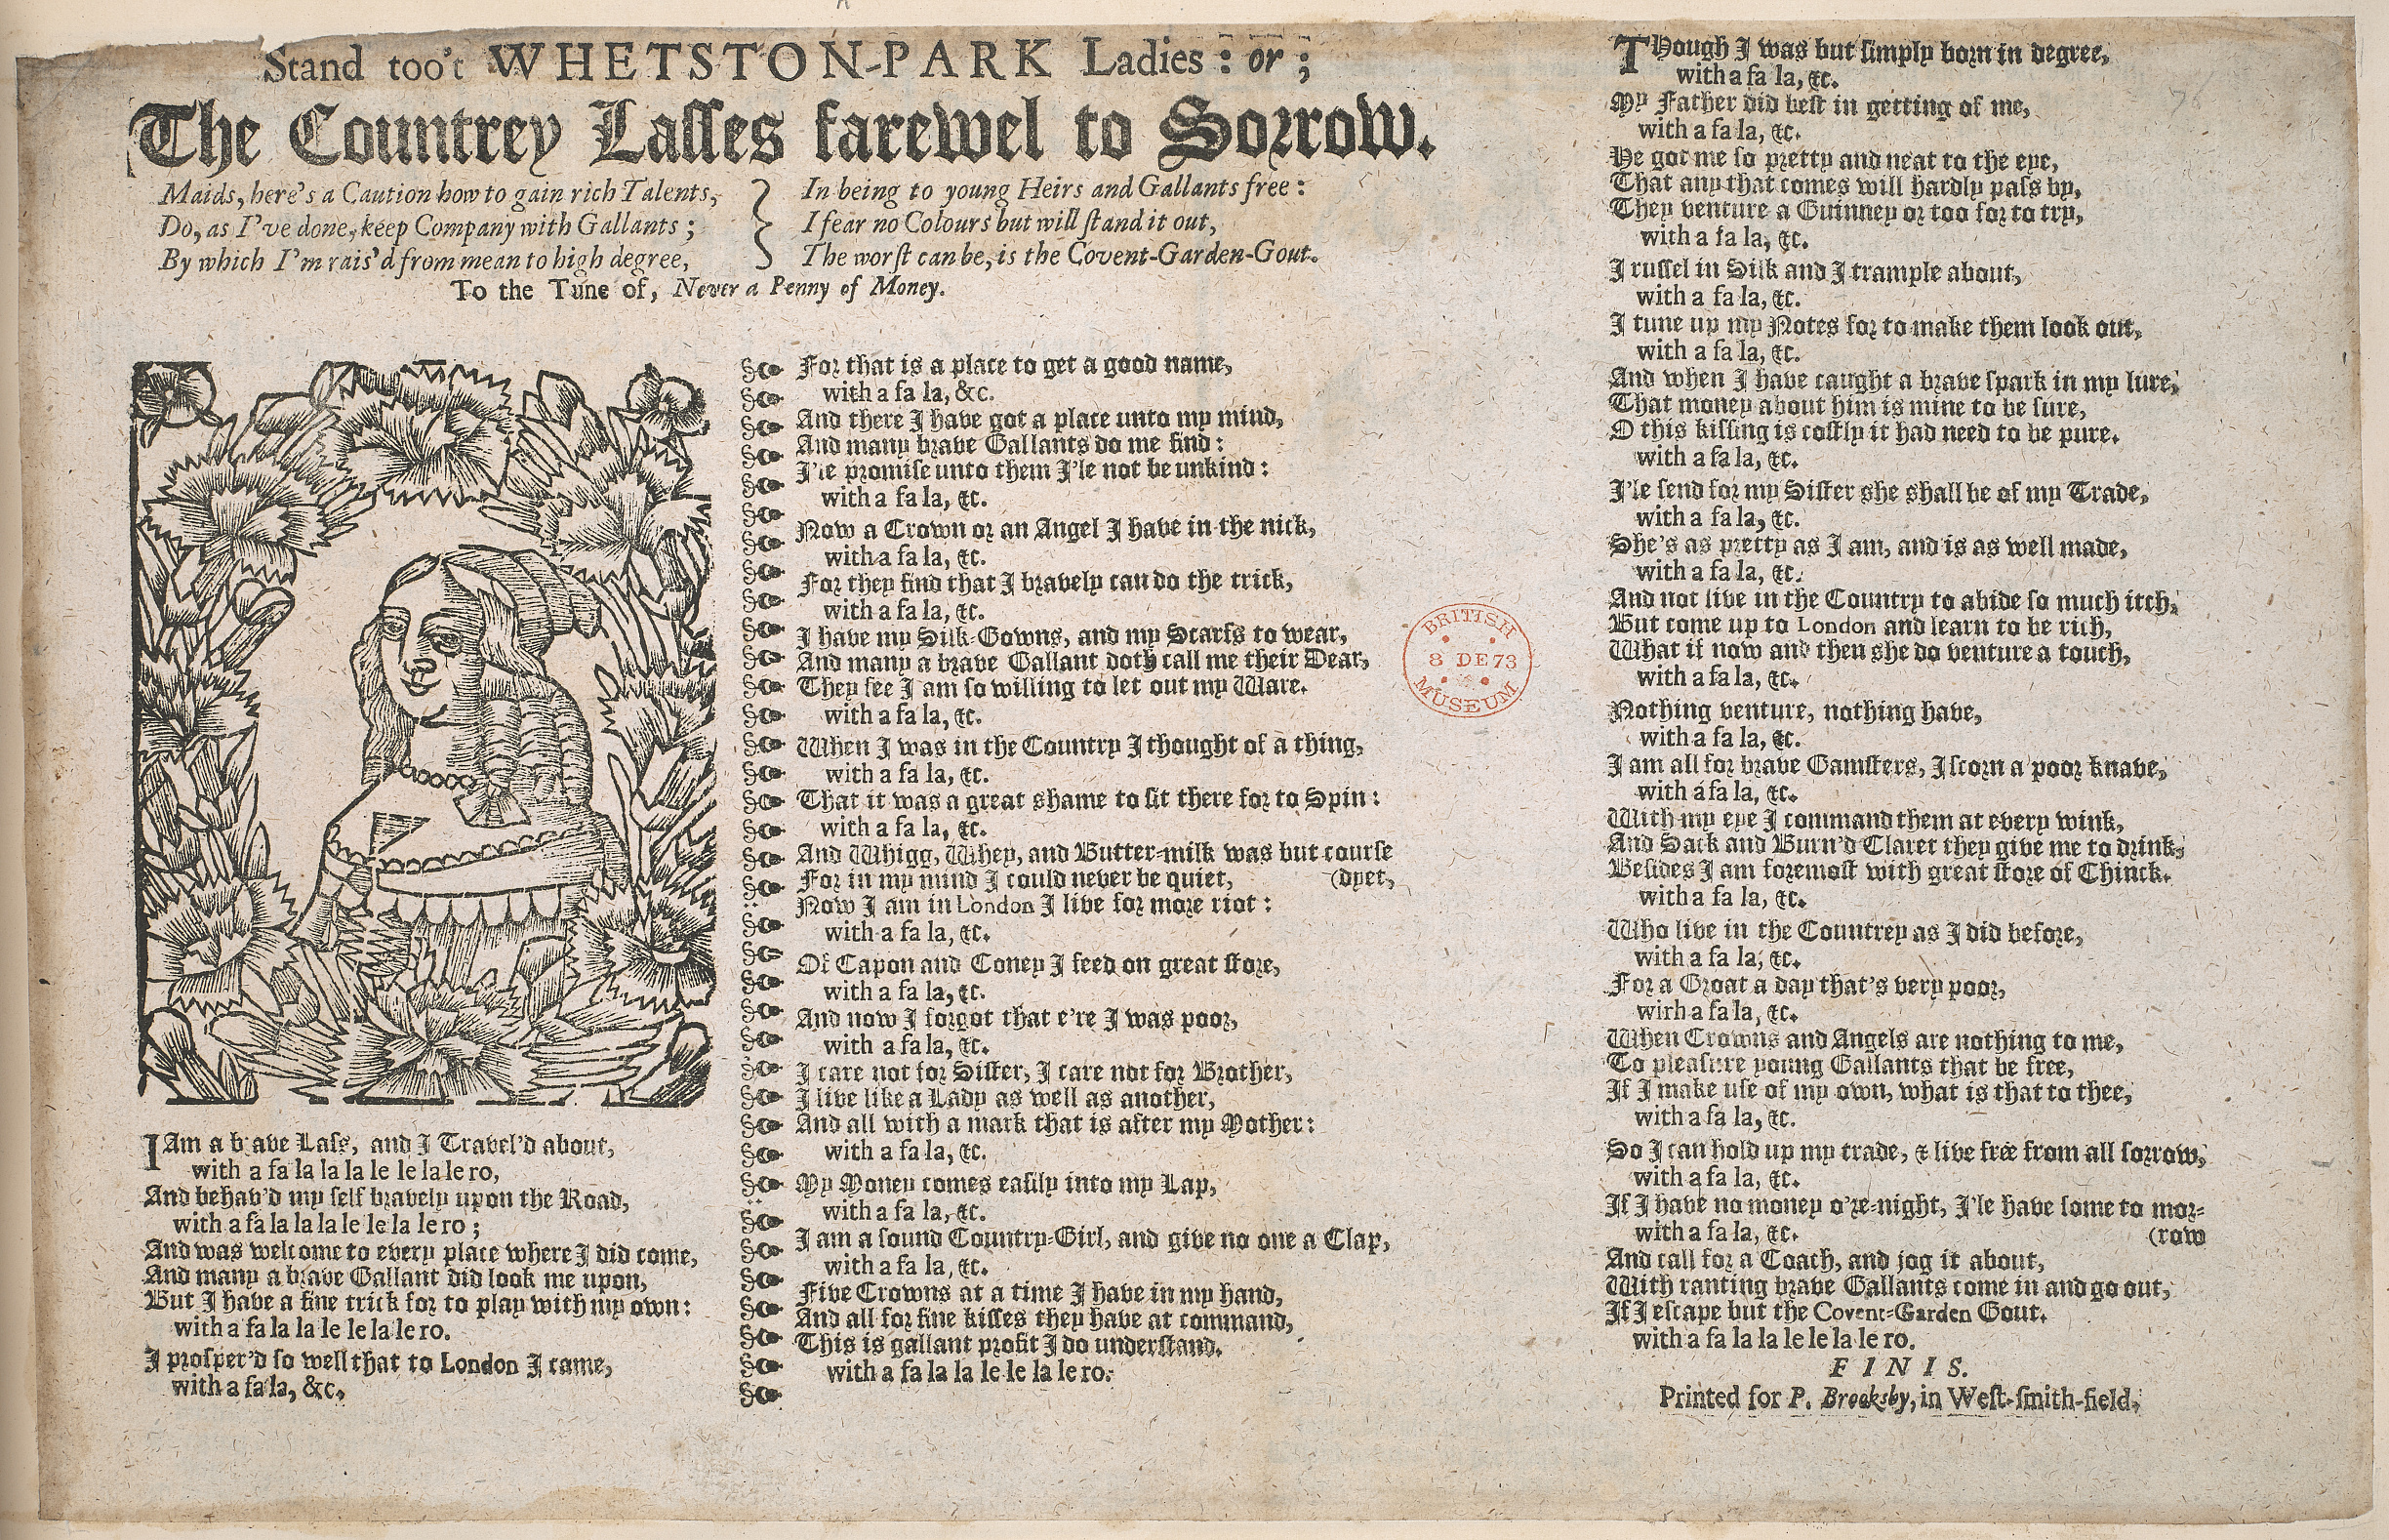 Stand too't WHETSTON-PARK Ladies: or;
The Countrey Lasses farewel to Sorrow.
Maids, here's a Caution how to gain rich Talents,
Do, as I've done, keep Company with Gallants;
By which I'm rais'd from mean to high degree,
In being to young Heirs and Gallants free:
I fear no Colours but will stand it out,
The worst can be, is the Covent-Garden-Gout.
To the Tune of, Never a Penny of Money.
I Am a brave Lass, and I Travel'd about,
with a fa la la la le le la le ro,
And behav'd my self bravely upon the Road,
with a fa la la la le le la le ro;
And was welcome to every place where I did come,
And many a brave Gallant did look me upon,
But I have a fine trick for to play with my own:
with a fa la la le le la le ro.
I prosper'd so well that to London I came,
with a fa la, &c,
For that is a place to get a good name,
with a fa la, &c.
And there I have got a place unto my mind,
And many brave Gallants do me find:
I'le promise unto them I'le not be unkind:
with a fa la, &c.
Now a Crown or an Angel I have in the nick,
with a fa la, &c.
For they find that I bravely can do the trick,
with a fa la, &c.
I have my Silk-Gowns, and my Scarfs to wear,
And many a brave Gallant doth call me their Dear,
They see I am so willing to let out my Ware.
with a fa la, &c.
When I was in the Country I thought of a thing,
with a fa la, &c.
That it was a great shame to sit there for to Spin:
with a fa la, &c.
And Whigg, Whey, and Butter-milk was but course
For in my mind I could never be quiet, (dyet,
Now I am in London I live for more riot:
with a fa la, &c.
Of Capon and Coney I feed on great store,
with a fa la, &c.
And now I forgot that e're I was poor,
with a fa la, &c.
I care not for Sister, I care not for Brother,
I live like a Lady as well as another,
And all with a mark that is after my Mother:
with a fa la, &c.
My Money comes easily into my Lap,
with a fa la, &c.
I am a sound Country-Girl, and give no one a Clap,
with a fa la, &c.
Five Crowns at a time I have in my hand,
And all for fine kisses they have at command,
This is gallant profit I do understand.
with a fa la la le le la le ro.
BRITISH
8 DE 73
MUSEUM
76
Though I was but simply born in degree,
with a fa la, &c.
My Father did best in getting of me,
with a fa la, &c.
He got me so pretty and neat to the eye,
That any that comes will hardly pass by,
They venture a Guinney or too for to try,
with a fa la, &c.
I russel in Silk and I trample about,
with a fa la, &c.
I tune up my Notes for to make them look out,
with a fa la, &c.
And when I have caught a brave spark in my lure,
That money about him is mine to be sure,
O this kissing is costly it had need to be pure.
with a fa la, &c.
I'le send for my Sister she shall be of my Trade,
with a fa la, &c.
She's as pretty as I am, and is as well made,
with a fa la, &c.
And not live in the Country to abide so much itch,
But come up to London and learn to be rich,
What if now and then she do venture a touch,
with a fa la, &c.
Nothing venture, nothing have,
with a fa la, &c.
I am all for brave Gamsters, I scorn a poor knave,
with a fa la, &c.
With my eye I command them at every wink,
And Sack and Burn'd Claret they give me to drink,
Besides I am foremost with great store of Chinck.
with a fa la, &c.
Who live in the Countrey as I did before,
with a fa la, &c.
For a Groat a day that's very poor,
wirh a fa la, &c.
When Crowns and Angels are nothing to me,
To pleasure young Gallants that be free,
If I make use of my own, what is that to thee,
with a fa la, &c.
So I can hold up my trade, & live free from all sorrow,
with a fa la, &c.
If I have no money o're-night, I'le have some to mor-
with a fa la, &c. (row
And call for a Coach, and jog it about,
With ranting brave Gallants come in and go out,
If I escape but the Covent-Garden Gout.
with a fa la la la le le la le ro.
FINIS.
Printed for P. Brooksby, in West-smith-field,